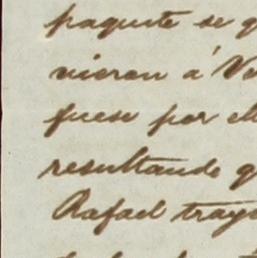 paquete se q
vieron á Ve
fuese por el
resultando q
Rafael tray